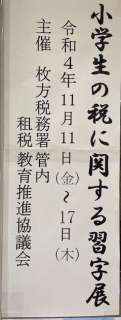 小学生の税に関する習字展
令和4年11月11日(金)~17日(木)
主催 枚方税務署管内
租税教育推進協議会